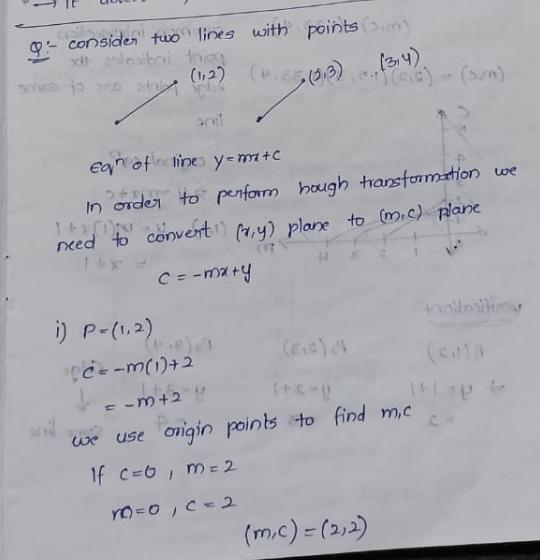 Q:- consider two lines with points
(1,2) (2,3) (3,4)
Eqn of line y=mx+c
In order to perform hough transformation we
need to convert (x,y) plane to (m,c) plane
c = -mx+y
i) P=(1,2)
c = -m(1)+2
= -m+2
we use origin points to find m,c
If c=0, m=2
m=0, c=2
(m,c) = (2,2)